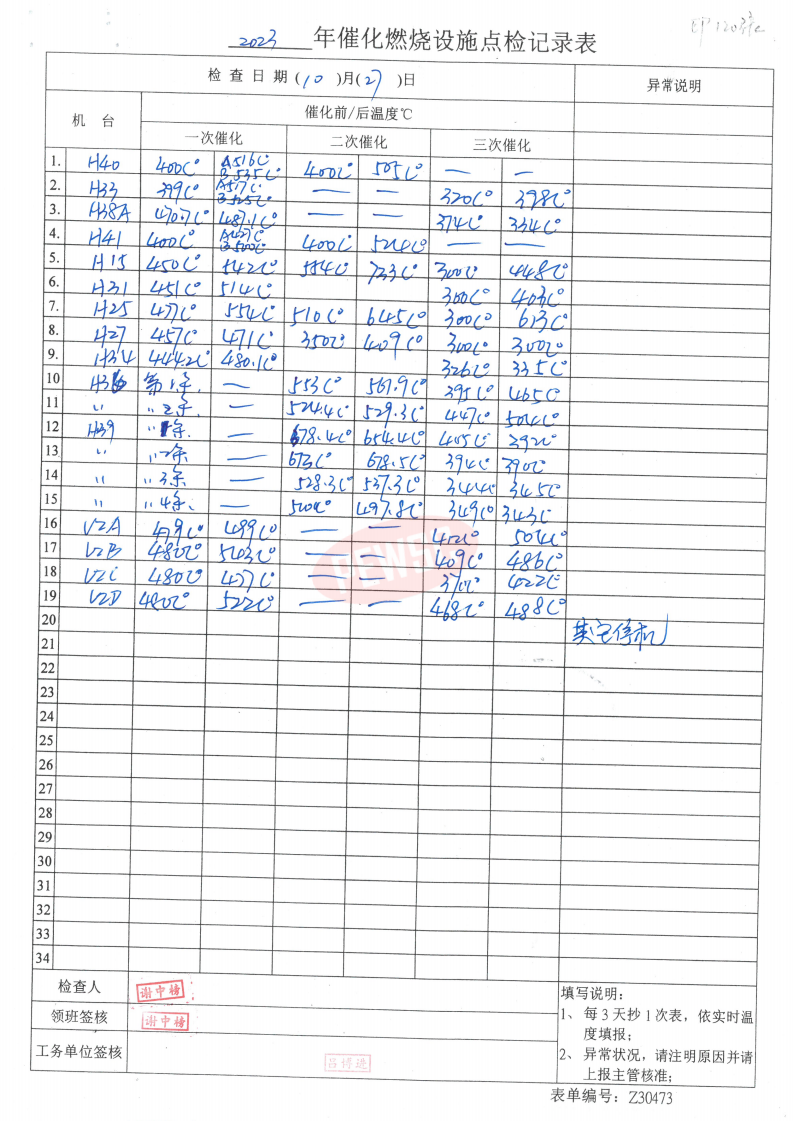 2023 年催化燃烧设施点检记录表
检查日期(10)月(27)日 异常说明
机台 催化前/后温度℃
一次催化 二次催化 三次催化
1. H40 400C° A516C° B535C° 400C° 505C° — —
2. H33 399C° A517C° B525C° — — 320C° 398C°
3. H38A 470.7C° 487.1C° — — 374C° 334C°
4. H41 400C° 400C° 524C° — —
5. H15 450C° 542C° 554C° 733C° 300C° 448C°
6. H31 451C° 514C° 300C° 403C°
7. H25 477C° 554C° 510C° 645C° 300C° 613C°
8. H27 457C° 471C° 350C° 409C° 300C° 300C°
9. H34 444.2C° 480.1C° 326C° 335C°
10 第1条 — 553C° 567.9C° 395C° 465C°
11 〃 〃2条. — 524.4C° 529.3C° 447C° 504C°
12 H39 〃1条. — 678.4C° 654.4C° 405C° 392C°
13 〃 〃2条. — 673C° 678.5C° 394C° 390C°
14 〃 〃3条 — 528.3C° 537.3C° 344C° 345C°
15 〃 〃4条. — 500C° 497.8C° 349C° 343C°
16 V2A 479C° 499C° — — 504C°
17 V2B 480C° 503C° — — 409C° 486C°
18 V2C 480C° 477C° — — 422C°
19 V2D 480C° 522C° — — 468C° 488C°
20 其它停机
21
22
23
24
25
26
27
28
29
30
31
32
33
34
检查人 谢中榜
领班签核 谢中榜
工务单位签核
填写说明：
1、每3天抄1次表，依实时温
度填报；
2、异常状况，请注明原因并请
上报主管核准；
表单编号：Z30473